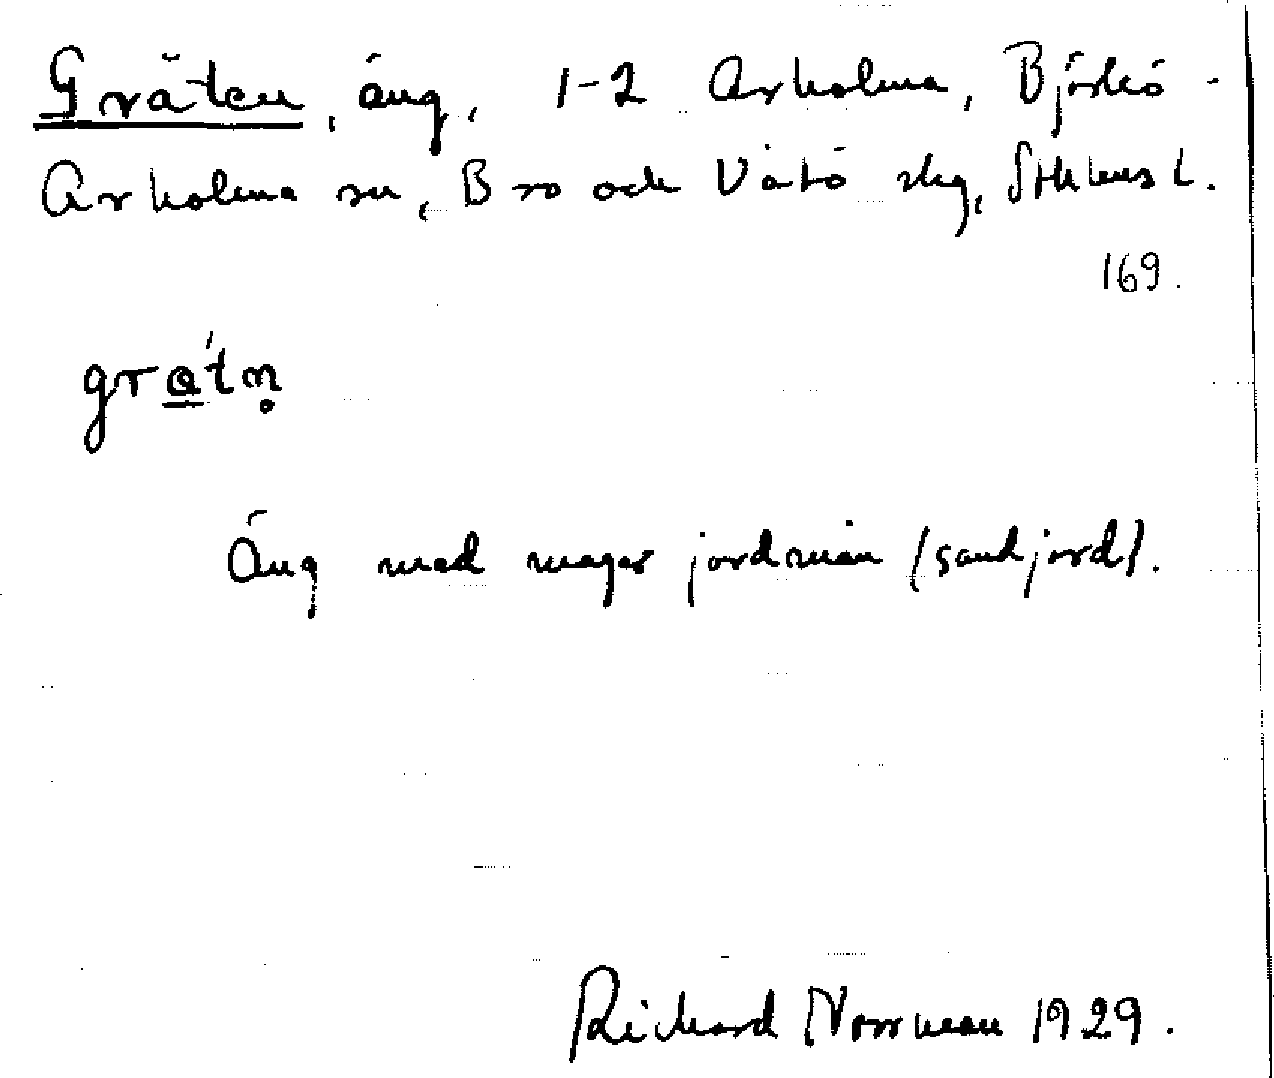 Gräten, äng, 1-2 Arholma, Björkö-
Arholma sn, Bro och Vätö skg, Sthlms l.
169.
grạ́tn̥
Äng med mager jordmån (sandjord).
Richard Norrman 1929.